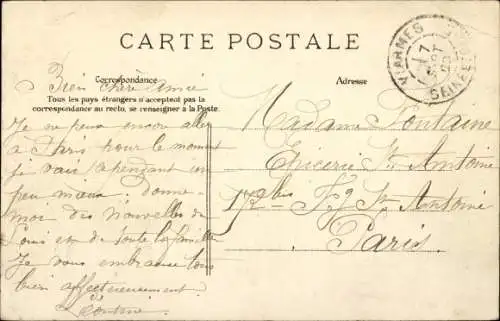 CARTE POSTALE
Correspondance
Tous les pays étrangers n'acceptent pas la
correspondance au recto, se renseigner à la Poste.
Adresse
VIARMES
17
SEINE
Bien chère Amie
Je ne peux encore aller
a Paris pour le moment
je vais cependant un
peu mieux Donne-
moi des nouvelles de
Louis et de toute la famille
Je vous embrasse tous
bien affectueusement
Madame Fontaine
Epicerie St Antoine
172 bis Fg St Antoine
Paris